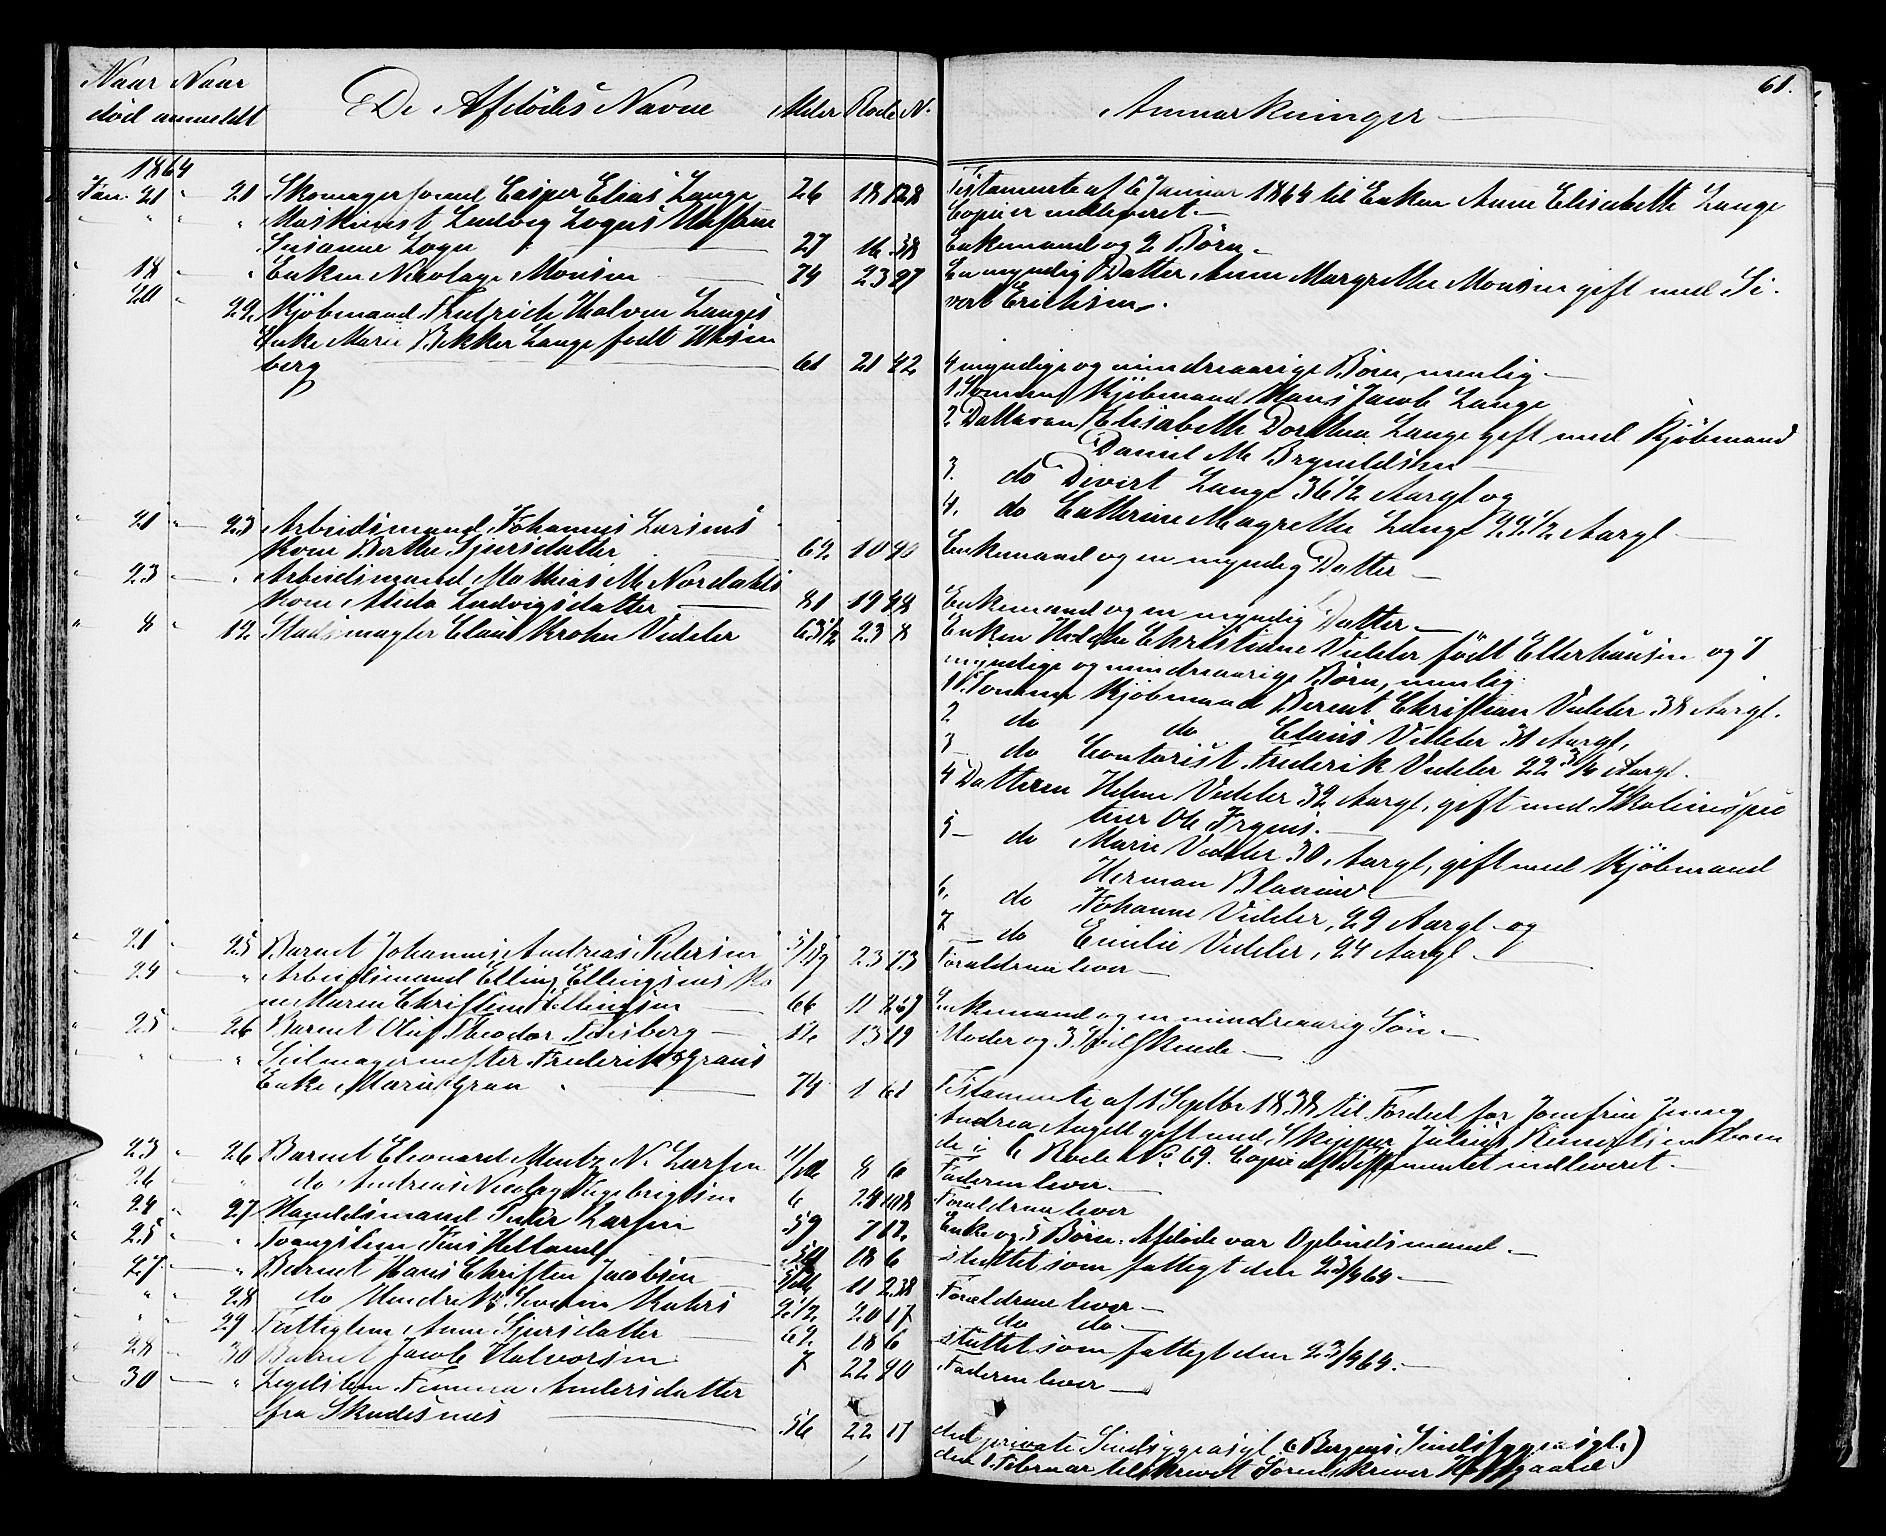 61.
Naar Naar De Afdødes Navne Alder Rode N. Anmærkninger
død anmeldt
1864
Jan. 21 " 21 Skomagersvend Casper Elias Lange 26 18 128 Testamente af 6 Januar 1864 til Enken Anne Elisabeth Lange
" " " Maskinist Ludvig Zogus Copi er indleveret.
Susanne Zogn 27 16 38 Enkemand og 2 Børn
" 18 " " Enken Nicolaye Monsen 74 23 97 En myndig Datter Anne Margrethe Monsen gift med Si-
vert Erichsen.
" 20 " 22. Kjøbmand Fredrich Halvor Langes
Enke Marie Bekker Lange født Wesen
berg 61 21 42 4 myndige og mindreaarige Børn, nemlig
1. Sønnen Kjøbmand Hans Jacob Lange
2 Datteren Elisabeth Dorthea Lange gift med Kjøbmand
Daniel M Brynildsen
3. do Divert Lange 36 1/2 Aargl og
4. do Cathrine Magrethe Lange 22 1/2 Aargl
" 21 " 23 Arbeidsmand Johannes Larsens
Kone Berthe Sjursdatter 62 10 90 Enkemand og en myndig Datter
" 23 " " Arbeidsmand Mathias M. Nordahls
Kone Alida Ludvigsdatter 81 19 48 Enkemand og en myndig Datter
" 8 " 12. Stadsmægler Claus Krohn Vedeler 63 1/2 23 8 Enken Christiane Vedeler født Ellerhausen og 7
myndige og mindreaarige Børn, nemlig:
1. Sønnen Kjøbmand Berent Christian Vedeler 38 Aargl.
2 do do Claus Vedeler 31 Aargl,
3 do Contorist Frederik Vedeler 22 3/4 Aargl.
4 Datteren Helene Vedeler 32 Aargl, gift med Skoleinspec
teur Ole Irgens.
5 do Marie Vedeler 30 Aargl, gift med Kjøbmand
Herman Blaauw
6. do Johanne Vedeler, 29 Aargl og
7 do Emilie Vedeler, 24 Aargl
" 21 " 25 Barnet Johannes Andreas Pedersen 23 73 Forældrene lever
" 24 " " Arbeidsmand Elling Ellingsens Ko
ne Maren Christine Ellingsen 66 11 Enkemand og en mindreaarig Søn.
" 25 " 26 Barnet Oluf Theodor 12 13 19 Moder og 3 Helsødskende
" " " Seilmagermester Frederik Grans
Enke Marie Gran 74 1 61 Testamente af 1 Septbr 1838 til Fordel for Jomfrue Jenny
Andrea Angell gift med Skipper Julius
de i 6 Rode No 69. Copie af Testamentet indleveret.
" 23 " 26 Barnet Eleonard Mentz N. Larsen 8 6 Faderen lever.
" 26 " " do Andreas Nicolay Ingebrigtsen 6 24 108 Forældrene lever
" 24 " 27 Handelsmand Peder Larsen 59 7 Enke og 5 Børn. Afdøde var Opbudsmand.
" 25 " " Tvangslem Jens Helland 18 6 støttet som fattigt den 23/4 64.
" 27 " " Barnet Hans Christen Jacobsen 11 238 Forældrene lever
" " " 28 do Hendrik Severin Kahrs 2 1/2 20 17 do do
" " " 29 Fattiglem Anne Sjursdatter 62. 18 6 støttet som fattigt den 23/4 64.
" 28 " 30 Barnet Jacob Halvorsen 7 22 90 Faderen lever
" 30 " " Legdslem Andersdatter
fra Skudesnæs 56 22 11 det private Sindsygeasyl (Bergens Sindssygeasyl.)
den 1 Februar tilskrevet Sorenskriver